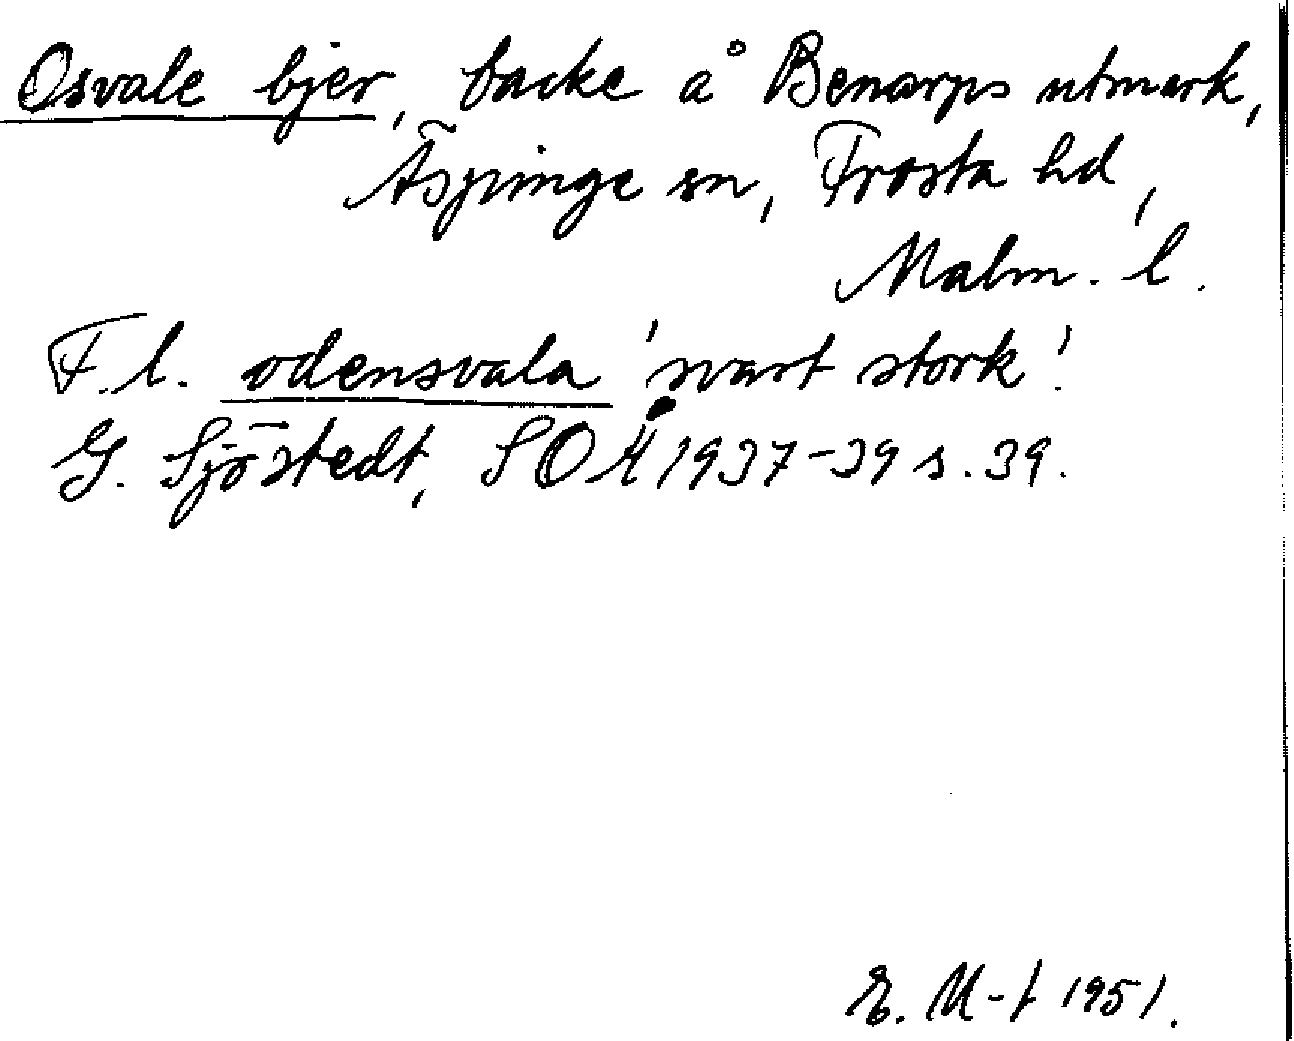 Osvale bjer, backe å Benarps utmark,
Äspinge sn, Frosta hd,
Malm. l.
F. l. odensvala 'svart stork'.
G. Sjöstedt, SOÅ 1937-39 s. 39.
E. M-t 1951.